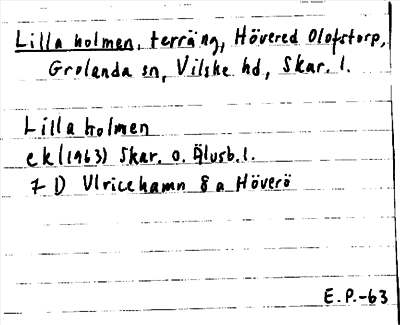 Lilla holmen, terräng, Hövered Olofstorp,
Grolanda sn, Vilske hd, Skar. l.
Lilla holmen
ek (1963) Skar. o. Älvsb. l.
7 D Ulricehamn 8 a Höverö
E. P.-63